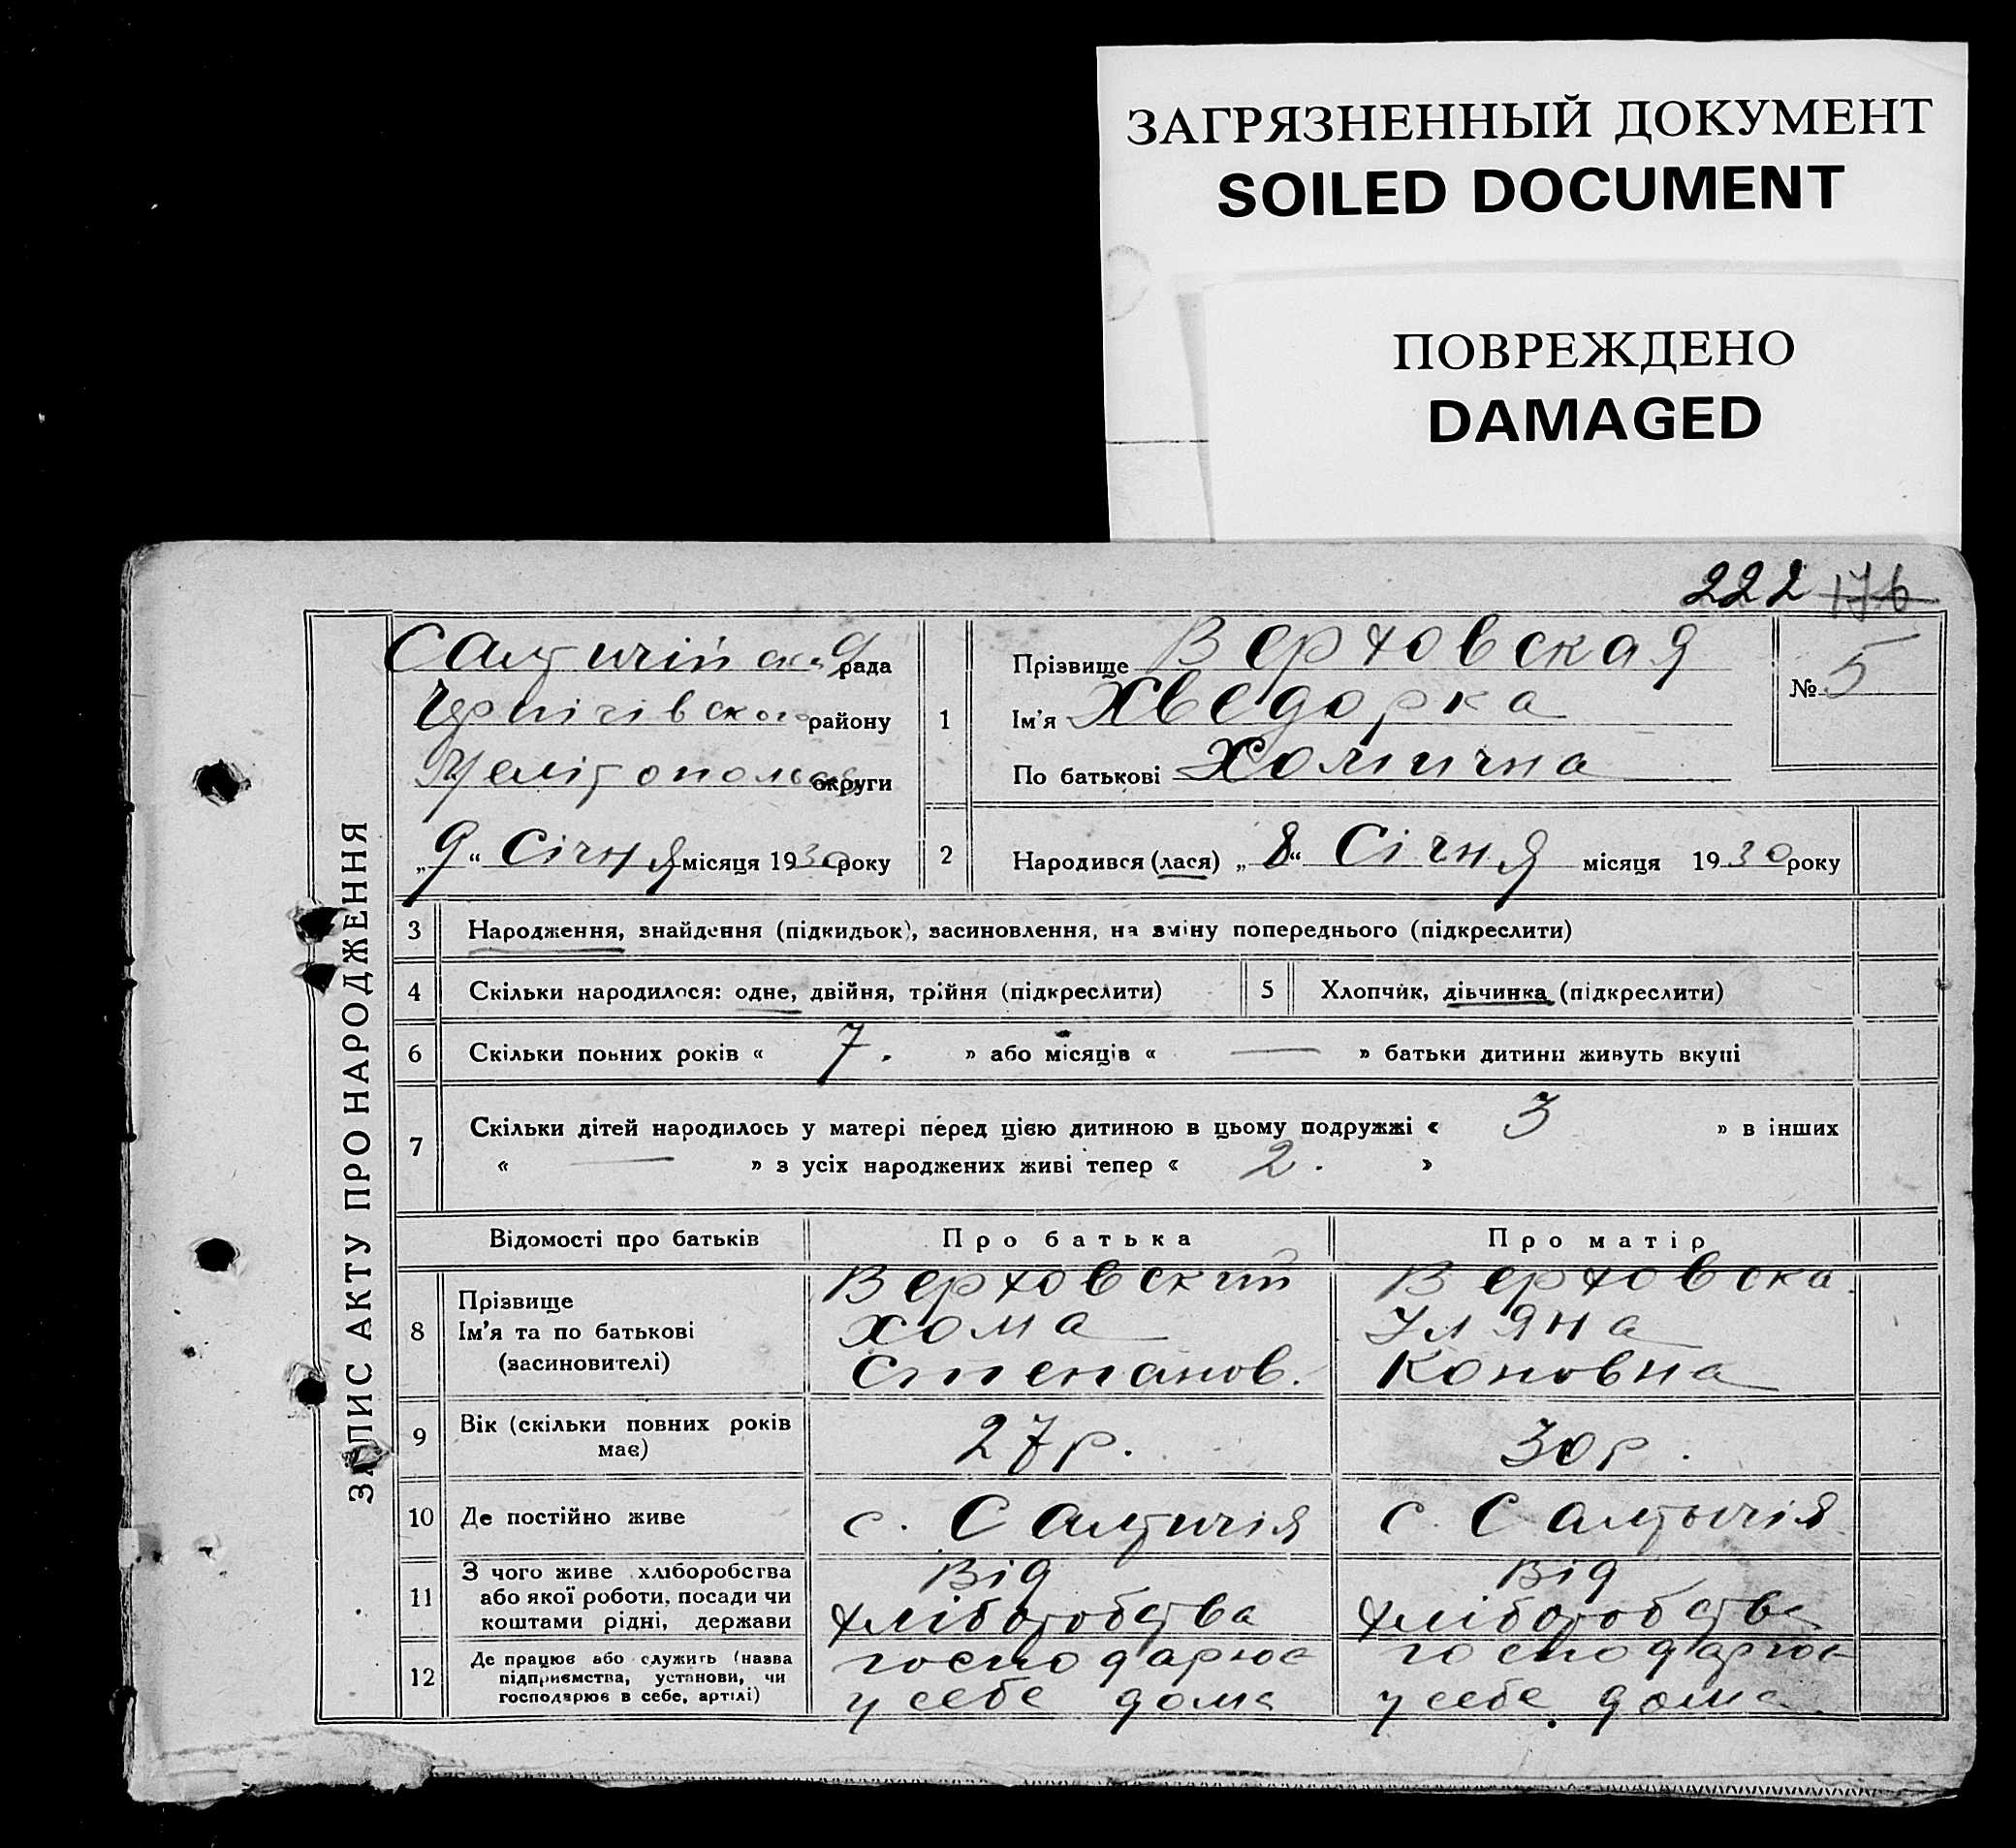 ЗАГРЯЗНЕННЫЙ ДОКУМЕНТ
SOILED DOCUMENT
ПОВРЕЖДЕНО
DAMAGED
222 176
ЗАПИС АКТУ ПРО НАРОДЖЕННЯ
Салтичійська рада
Чернігівського району
Мелітопольськ округи
„9“ Січня місяця 1930 року
1
Прізвище Вертовская
Ім'я Хведорка
По батькові Хомична
№ 5
2
Народився (лася) „8“ Січня місяця 1930 року
3 Народження, знайдення (підкидьок), засиновлення, на зміну попереднього (підкреслити)
4 Скільки народилося: одне, двійня, трійня (підкреслити) 5 Хлопчик, дівчинка (підкреслити)
6 Скільки повних років « 7. » або місяців « — » батьки дитини живуть вкупі
7 Скільки дітей народилось у матері перед цією дитиною в цьому подружжі « 3 » в інших
« — » з усіх народжених живі тепер « 2. »
Відомості про батьків Про батька Про матір
8 Прізвище Вертовский Вертовска
Ім'я та по батькові Хома Уляна
(засиновителі) Степанов. Коновна
9 Вік (скільки повних років має) 27 р. 30 р.
10 Де постійно живе с. Салтичія с. Салтичія
11 З чого живе хліборобства Від Від
або якої роботи, посади чи
коштами рідні, держави хліборобства хліборобства
12 Де працює або служить (назва господарює господарює
підприємства, установи, чи
господарює в себе, артілі) у себе дома у себе дома